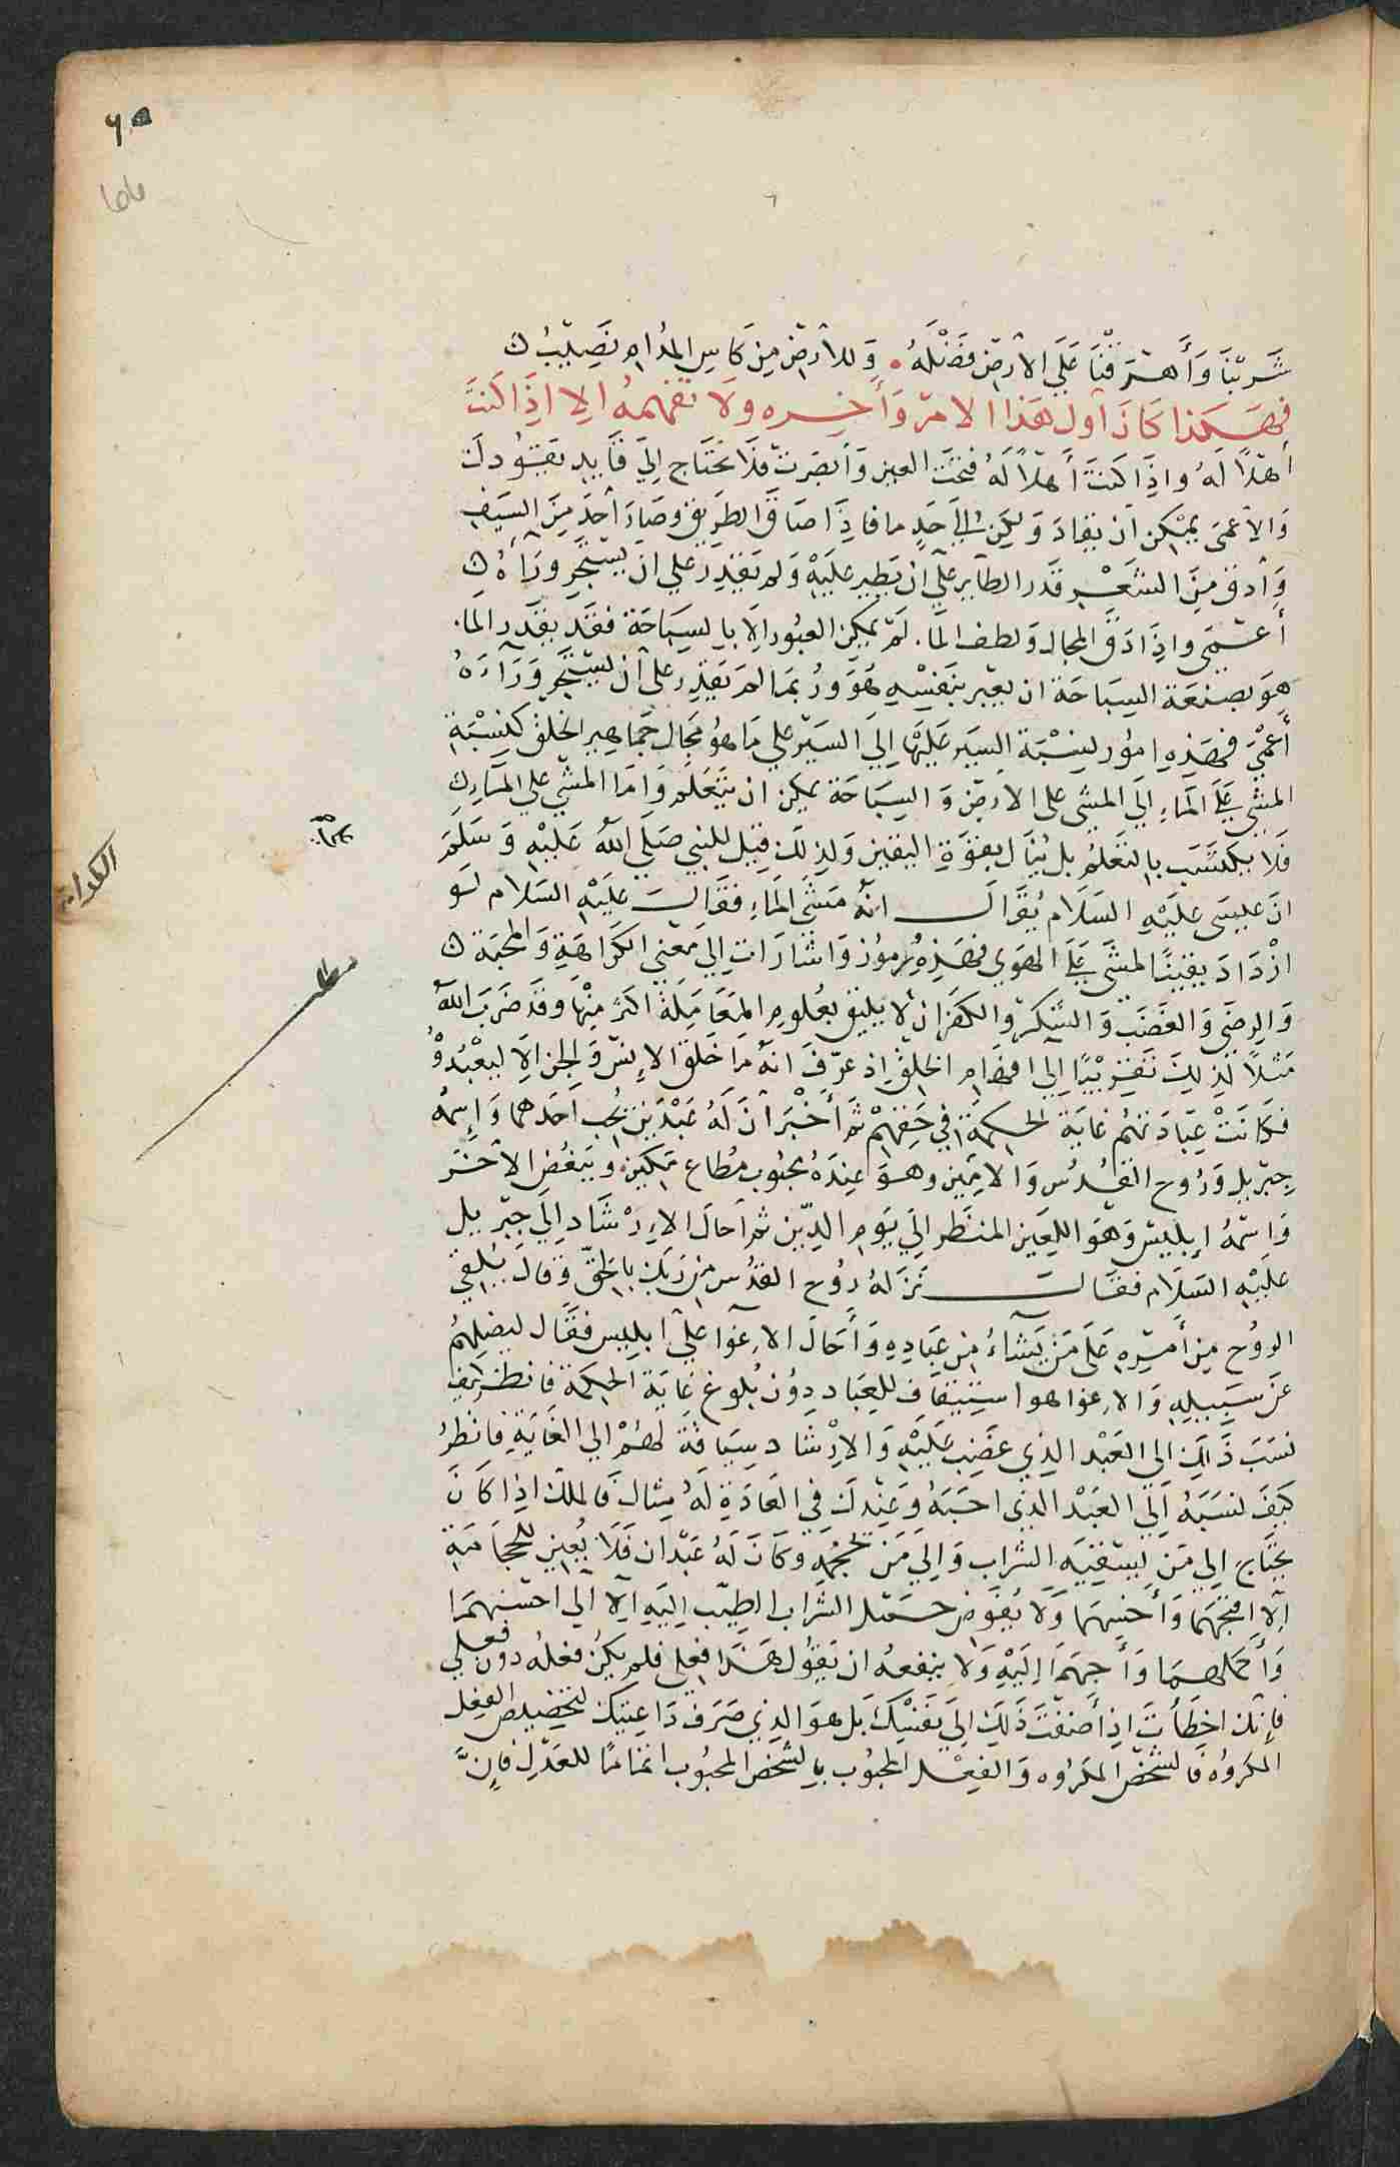 ٦٥
شَرِبْنَا وَأَهْرَقْنَا عَلَى الأَرْضِ فَضْلَهُ . وَللأرض مِنْ كَاسِ المُدامِ نَصِيْبُ ن
فهكذا كَانَ أول هذا الامر وَأخِره ولا تفهمهُ الا اذَا كنتَ
أهلاً لَهُ واذَا كنتَ أهلاً لَهُ فتحتَ العين وَأبصَرت فلا تحتَاج إلى قَايدٍ يقودك
وَالأعمَى يمكن أن يقادَ وَلكن الى حَدٍ ما فاذَا ضَاقَ الطَريق وصَارَ أحدَ مِنَ السَيفِ
وَأدق مِنَ الشَعْرِ قَدر الطاير على ان يَطير عليَهْ وَلم يقدِر على ان يستجر ورَآه ن
أعمَى واذَا دَقَّ المجال وَلطف الما. لَمْ يمكِن العبُور إلاَ بالسِبَاحَة فقد يقدر الما.
هِوَ بصنعَة السِبَاحَة ان يعبر بنَفسْهِ هُوَ ورُبمَا لم يَقدِر على أن يستجر وَرَآءَهُ
أعمْىَ فهَذِهِ امُور لنِسْبَة السَير عَليَهْا إلى السَيْر على مَا هوُ مَجَال جَماهير الخلق كنِسْبَة
المشى عَلَى المَاءِ إلى المشى على الارض وَالسِبَاحَة يمكن ان تتعَلم وَامَا المشى على المَاء ن
فَلا يكتسَب بالتعَلُم بل يُنَال بقوَةِ اليقين وَلذِلكَ قيِل للنبي صَلَى اللهُ عَليْهِ وَسَلَم
انَ عِيسَى عليَهِ السَلَام يُقَال انهُ مَشى المَاءِ فقَال عليَهْ السَلام لَو
ازْدَادَ يقيناً لمشَى عَلَى الهَوى فهَذِهِ رمُوز وَاشَارَات إلىَ مَعْني الكرَاهَةِ وَالمحبَة ن
وَالرضَى وَالغَضَبِ وَالشكر وَالكفرَان لا يليق بعُلومِ المعَامَلَة اكثر مِنْهَا وقد ضَرَبَ اللهُ
مَثلاً لذِلكَ تقرِيْبًا إلى افهامِ الخلق إذ عرَفَ انهُ مَا خَلقَ الانس وَالجن إلاَ ليعْبُدوُ
فكانَتْ عِبَادَتهُم غايَة الحكمة في حَقِهِمْ ثم أخْبرَ أنَ لَهُ عَبْدَين يُحب احَدهما وَاسِمهُ
جِبْريل وَرُوح القدُس وَالامين وهوَ عِندَهُ محبُوب مُطاع مَكين ويَبغُض الأخَر
وَاسْمُهُ إبليس وَهوَ اللعِين المنظَر إلى يَومِ الدِّين ثم أحالَ الارْشَاد إلىَ جِبْريل
عليَهِ السَلَام فقالـ نَزلهُ رُوح القدُس مِن رَبكَ بالحَقّ وَقالَ يُلقي
الرُوح مِن أَمْرِهِ عَلَى مَن يَشَاءُ مِن عِبَادِهِ وَأحَالَ الاغوآ علىَ ابليس فقَال ليضِلهُم
عَن سَبيلِهِ وَالاغوا هوا ستيقَاف للعِبَاد دوُن بُلوغ غايَة الحكمة فانظر كيف
نسَبَ ذَلك الى العَبْد الذي غضِب عَليَهْ وَالارْشَاد سِيَاقة لهُمْ الى الغَايَةِ فانظُر
كيَفَ نسَبَهُ إلى العَبْد الذي احَبَهُ وَعِنْدكَ في العَادَةِ لَهُ مِثال فَالملك اذا كانَ
يحتَاج إلى مَن يسقيهِ الشراب وَالي مَن يحجُمه وكان لَهُ عَبْدان فَلَا يُعين للحجامَة
إلا اقبحَهَمَا وَأخسهَما وَلا يُفوض حمل الشَراب الطيب اليَهِ الا إلى احسنهمَا
وَأكملهمَا وَأحِبهَمَا إليَهْ وَلا ينبغى ان يَقوُل هَذَا فعِلى فلم يكن فعلهُ دون فعلي
فإنك اخطأتَ اذ أضفتَ ذَلك إلىَ نَفْسِكَ بَل هوَ الذي صَرَفَ دَاعِيتك لتخصِيص الفِعل
المكروُه فالشخص المكروُه وَالفعل المحبُوب بالشخص المحبُوب اتماماً للعَدل فإنَّ
مطلب